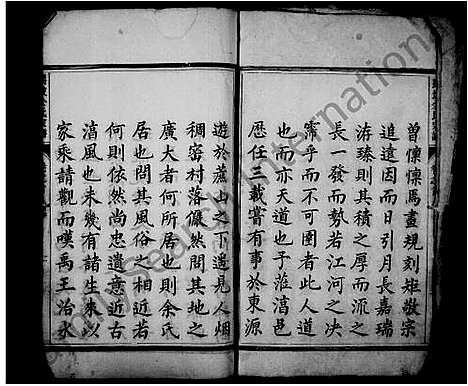 曾懍懍焉畫規刻矩敬宗
追遠因而日引月長嘉瑞
洊臻則其積之厚而流之
長一發而勢若江河之決
霈乎而不可圉者此人道
也而亦天道也予蒞滀邑
歷任三載嘗有事於東源
遊於蘆山之下遇見人烟
稠密村落儼然問其地之
廣大者何所居也則余氏
居也問其風俗之相近若
何則依然尚忠遺意近古
滀風也未幾有諸生來以
家乘請觀而嘆禹王治水